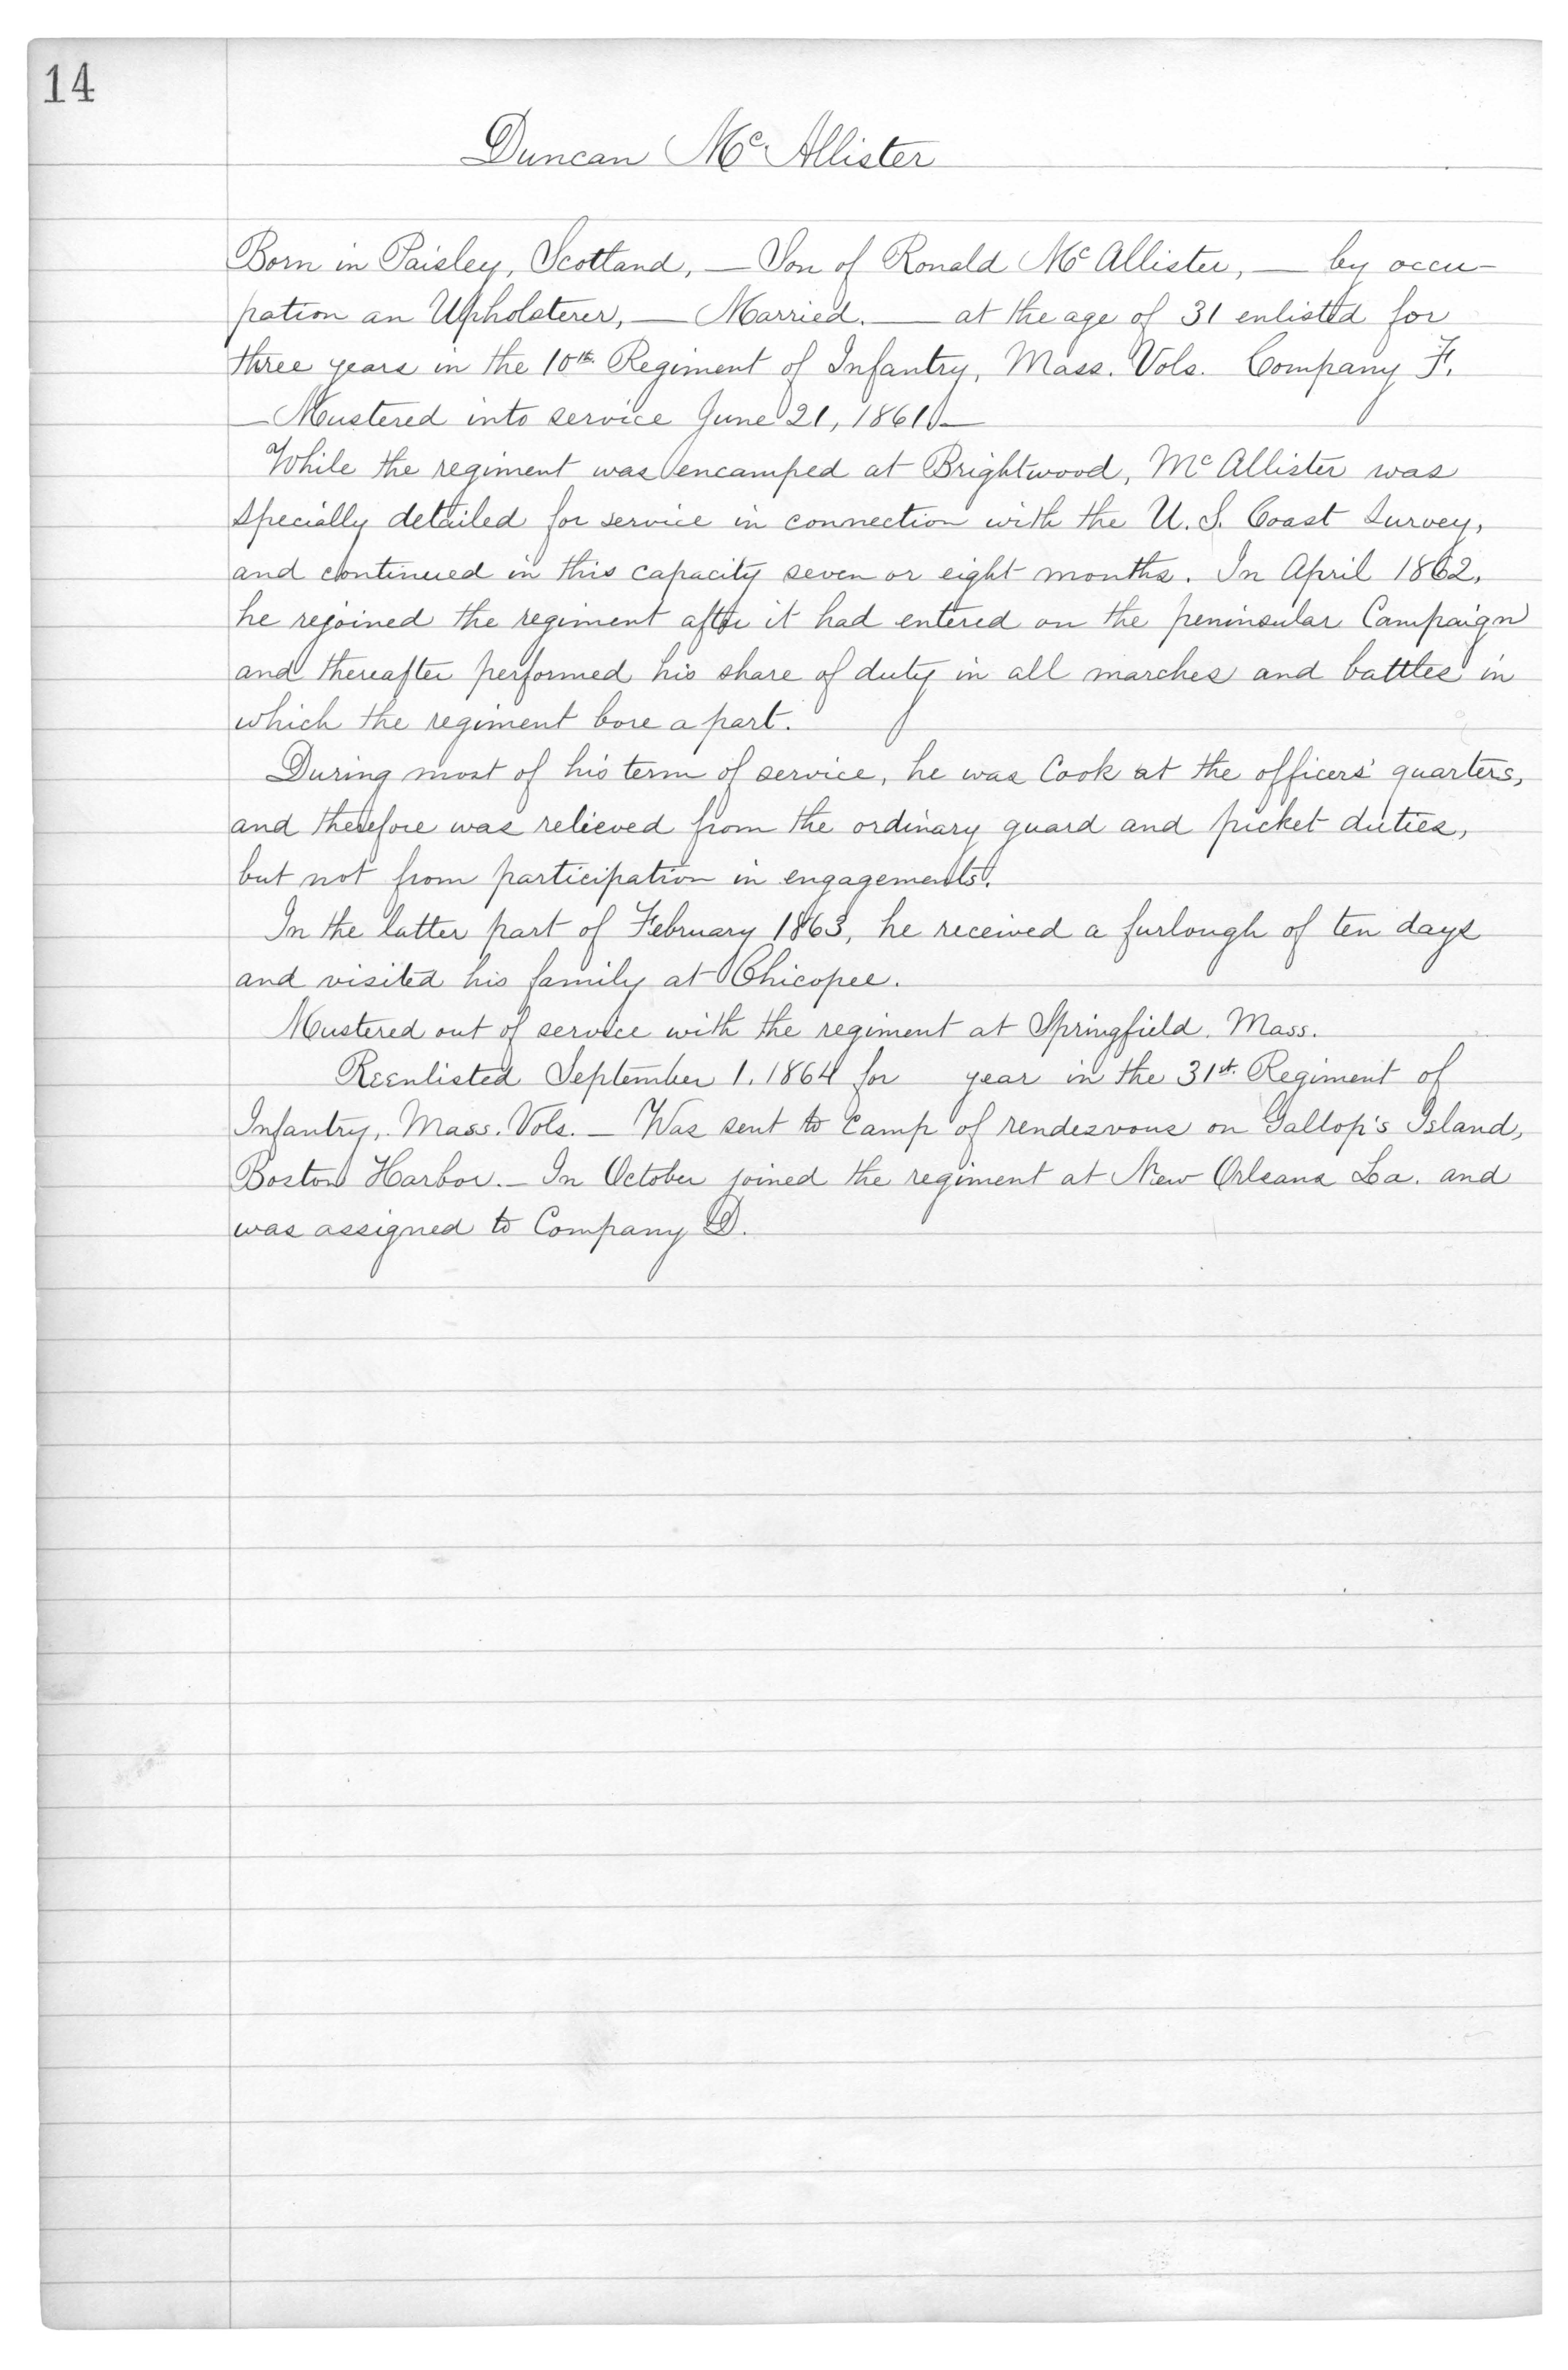 14
Duncan McAllister
Born in Paisley, Scotland, — Son of Ronald McAllister, — by occu-
pation an Upholsterer, — Married. — at the age of 31 enlisted for
three years in the 10th Regiment of Infantry, Mass. Vols. Company F.
— Mustered into service June 21, 1861. —
While the regiment was encamped at Brightwood, McAllister was
specially detailed for service in connection with the U. S. Coast Survey,
and continued in this capacity seven or eight months. In April 1862,
he rejoined the regiment after it had entered on the peninsular Campaign
and thereafter performed his share of duty in all marches and battles in
which the regiment bore a part.
During most of his term of service, he was Cook at the officers' quarters,
and therefore was relieved from the ordinary guard and picket duties,
but not from participation in engagements.
In the latter part of February 1863, he received a furlough of ten days
and visited his family at Chicopee.
Mustered out of service with the regiment at Springfield. Mass.
Reenlisted September 1. 1864 for year in the 31st. Regiment of
Infantry, Mass. Vols. — Was sent to Camp of rendezvous on Gallop's Island,
Boston Harbor. — In October joined the regiment at New Orleans La. and
was assigned to Company D.